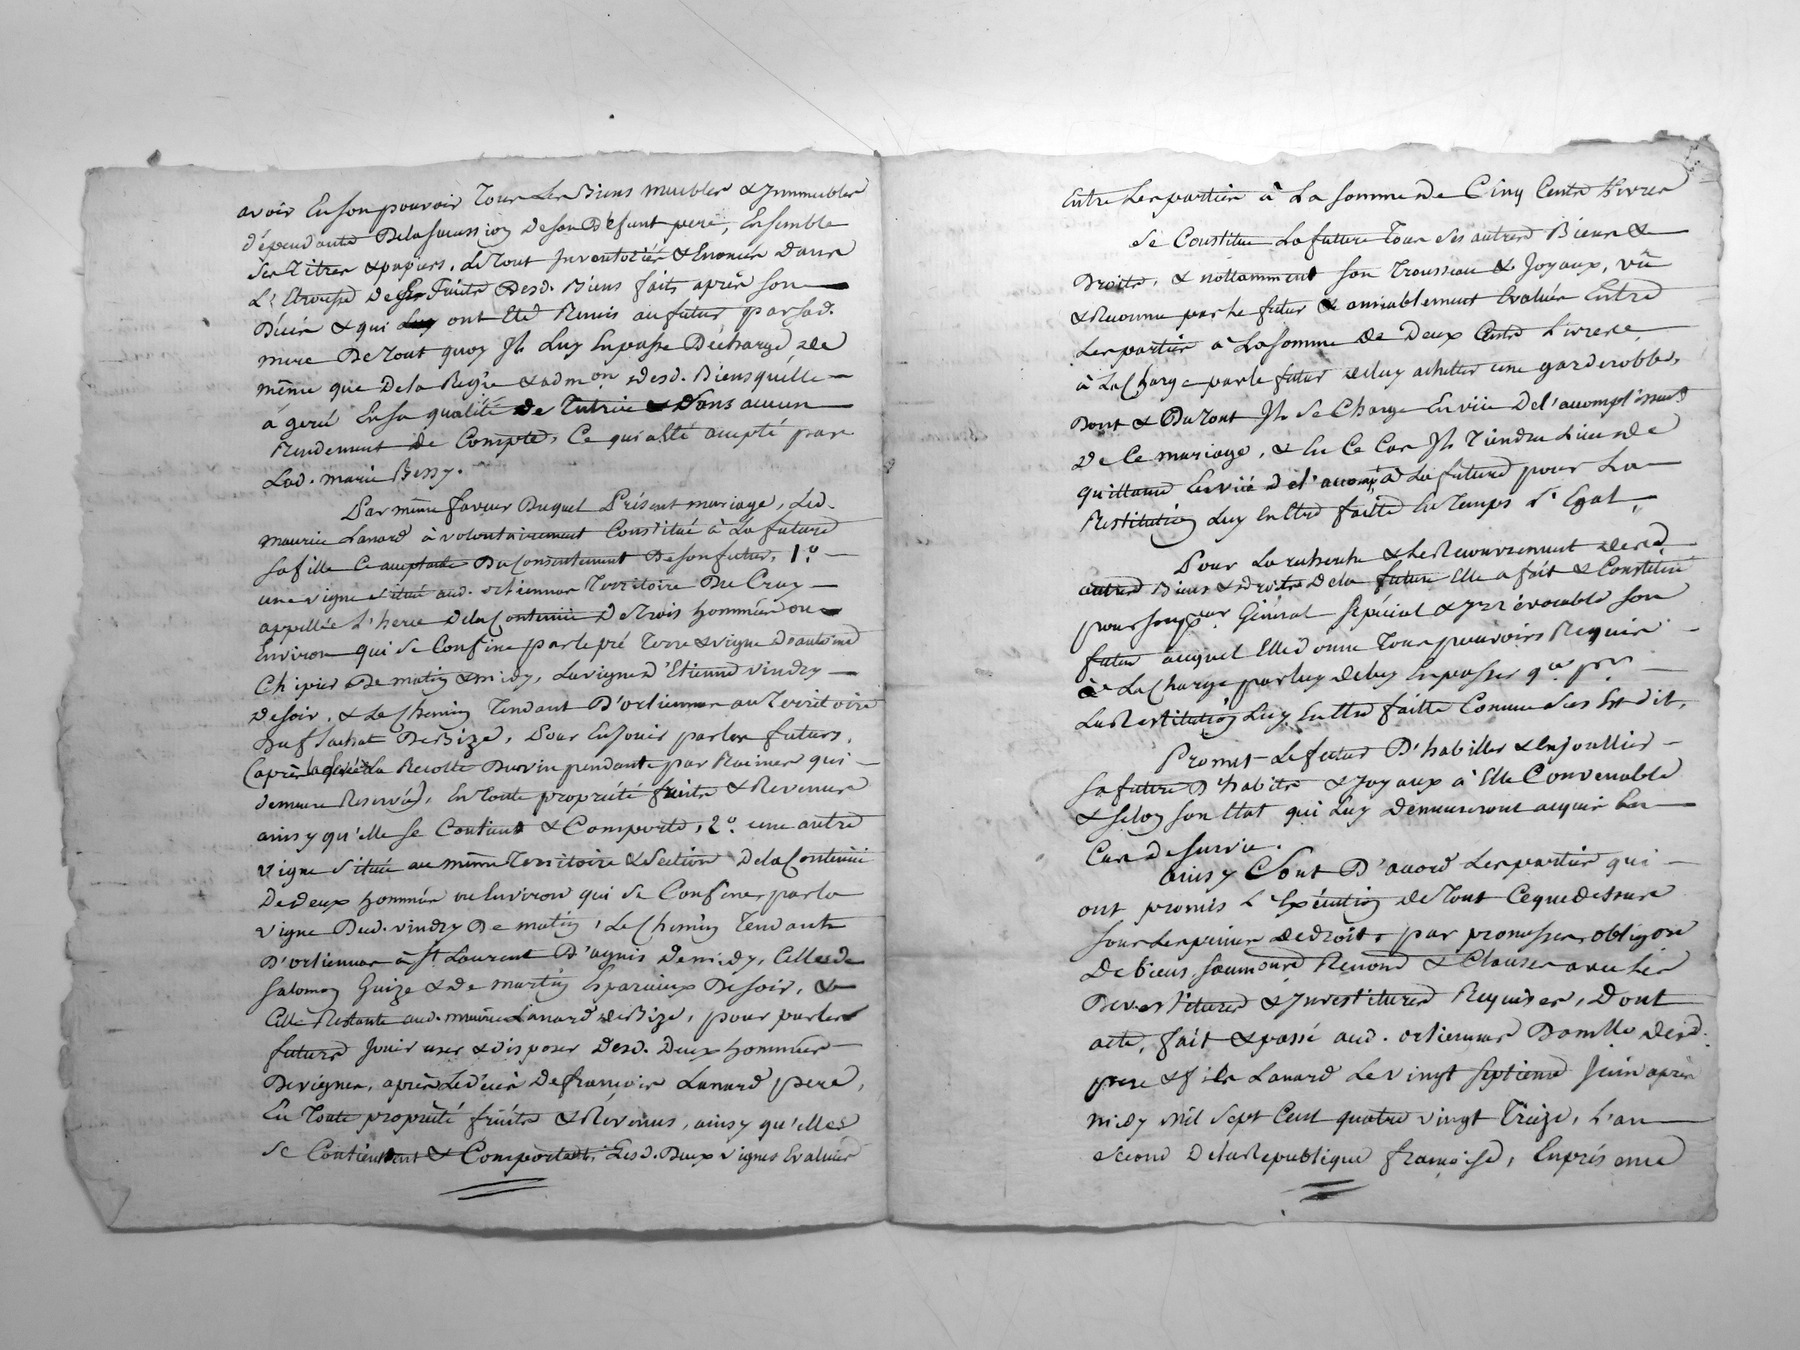 avoir En son pouvoir Tous Les Biens meubles & Immeubles
dépendants De la sucession De son Défunt pere, Ensemble
Ses Titres & papiers, Le Tout Inventoriés & Enoncés Dans
L'Etrousse Des fruits Desd. Biens faits après son
Décés & qui ont Eté Remis au futur par sad.
mere De Tout quoy Il Luy En passe Décharge, de
même que De la Regie & admon Desd. Biens qu'elle
à geré En sa qualité de Tutrice & Sans aucun
Rendement de Compte, Ce qui a Eté accepté par
Lad. marie Bessy.
Par même faveur Duquel Présent mariage, Led.
maurice Lanard à volontairement Constitué à La future
sa fille Ce acceptante Du Consentement De son futur, 1°.
une vigne située aud. orlienas Territoire Du Cray
appellée L'herce De la Contenüe De Trois hommées ou
Environ qui Se Confine par le pré Terre & vigne D'antoine
Chipier De matin & midy, La vigne d'Etienne vindry
De soir, & Le Chemin Tendant D'orlienas au Territoire
Du De Bize, Pour En Jouir par les futurs,
(après La Recolte Du vin pendante par Racines qui
demeure Reservée), En Toute propriété fruits & Revenus
ainsy qu'elle se Contient & Comporte, 2°. une autre
vigne Située au même Territoire & Section De la Contenüe
De deux hommées ou Environ qui Se Confine par la
vigne Dud. vindry De matin, Le Chemin Tendant
D'orlienas à St Laurent D'agnis De midy, Celle de
Salomon Guize & de martin Esparieux De soir, &
Celle Restante aud. maurice Lanard de Bize, pour par les
futurs Jouir user & disposer Desd. Deux hommées
De vignes, après Le décès De françois Lanard pere,
En Toute propriété fruits & Révenus, ainsy qu'elles
Se Contiennent & Comportent, Lesd. Deux vignes Evaluées
Entre Les parties à La somme de Cinq Cents Livres
Se Constitue La future Tous Ses autres Biens &
Droits, & nottamment Son Trousseau & Joyaux, vû
& Reconnu par Le futur & amiablement Evalués Entre
Les parties à La somme De Deux Cents Livres,
à La Charge par le futur de luy acheter une garderobbe,
Dont & Du Tout Il Se Charge En vüe De l'accomplissemt
De Ce mariage, & En Ce Cas Il Tiendra Lieu de
quittance En vüe d'el'accomp. à La future pour La
Restitution Luy En Etre faitte En Temps & Egat,
Pour La recherche & Le Recouvrement desd.
autres Biens & droits De la future Elle a fait & Constitué
pour son pcur Général Spécial & Irrévocable son
futur auquel Elle donne Tous pouvoirs Requis
à La Charge par luy de luy En passer qce pr
La Restitution Luy En Etre faitte Comme Sus Est dit,
Promet Le futur D'habiller & Enjoallier
Sa future D'habits & Joyaux à Elle Convenable
& Sélon Son Etat qui Luy Demeureront acquis En
Cas De survie.
ainsy Sont D'accord Les parties qui
ont promis L'Exécution de Tout Ceque dessus
sous Les peines de droit, par promesses, obligon
De biens, Soumons Renons & Clauses avec Les
Devestitures & Investitures Requises, Dont
acte, fait & passé aud. orlienas Domlle desd.
pere & fils Lanard Le vingt septieme Juin après
midy mil Sept Cent quatre vingt Treize, L'an
Second De la Republique françoise, En présence